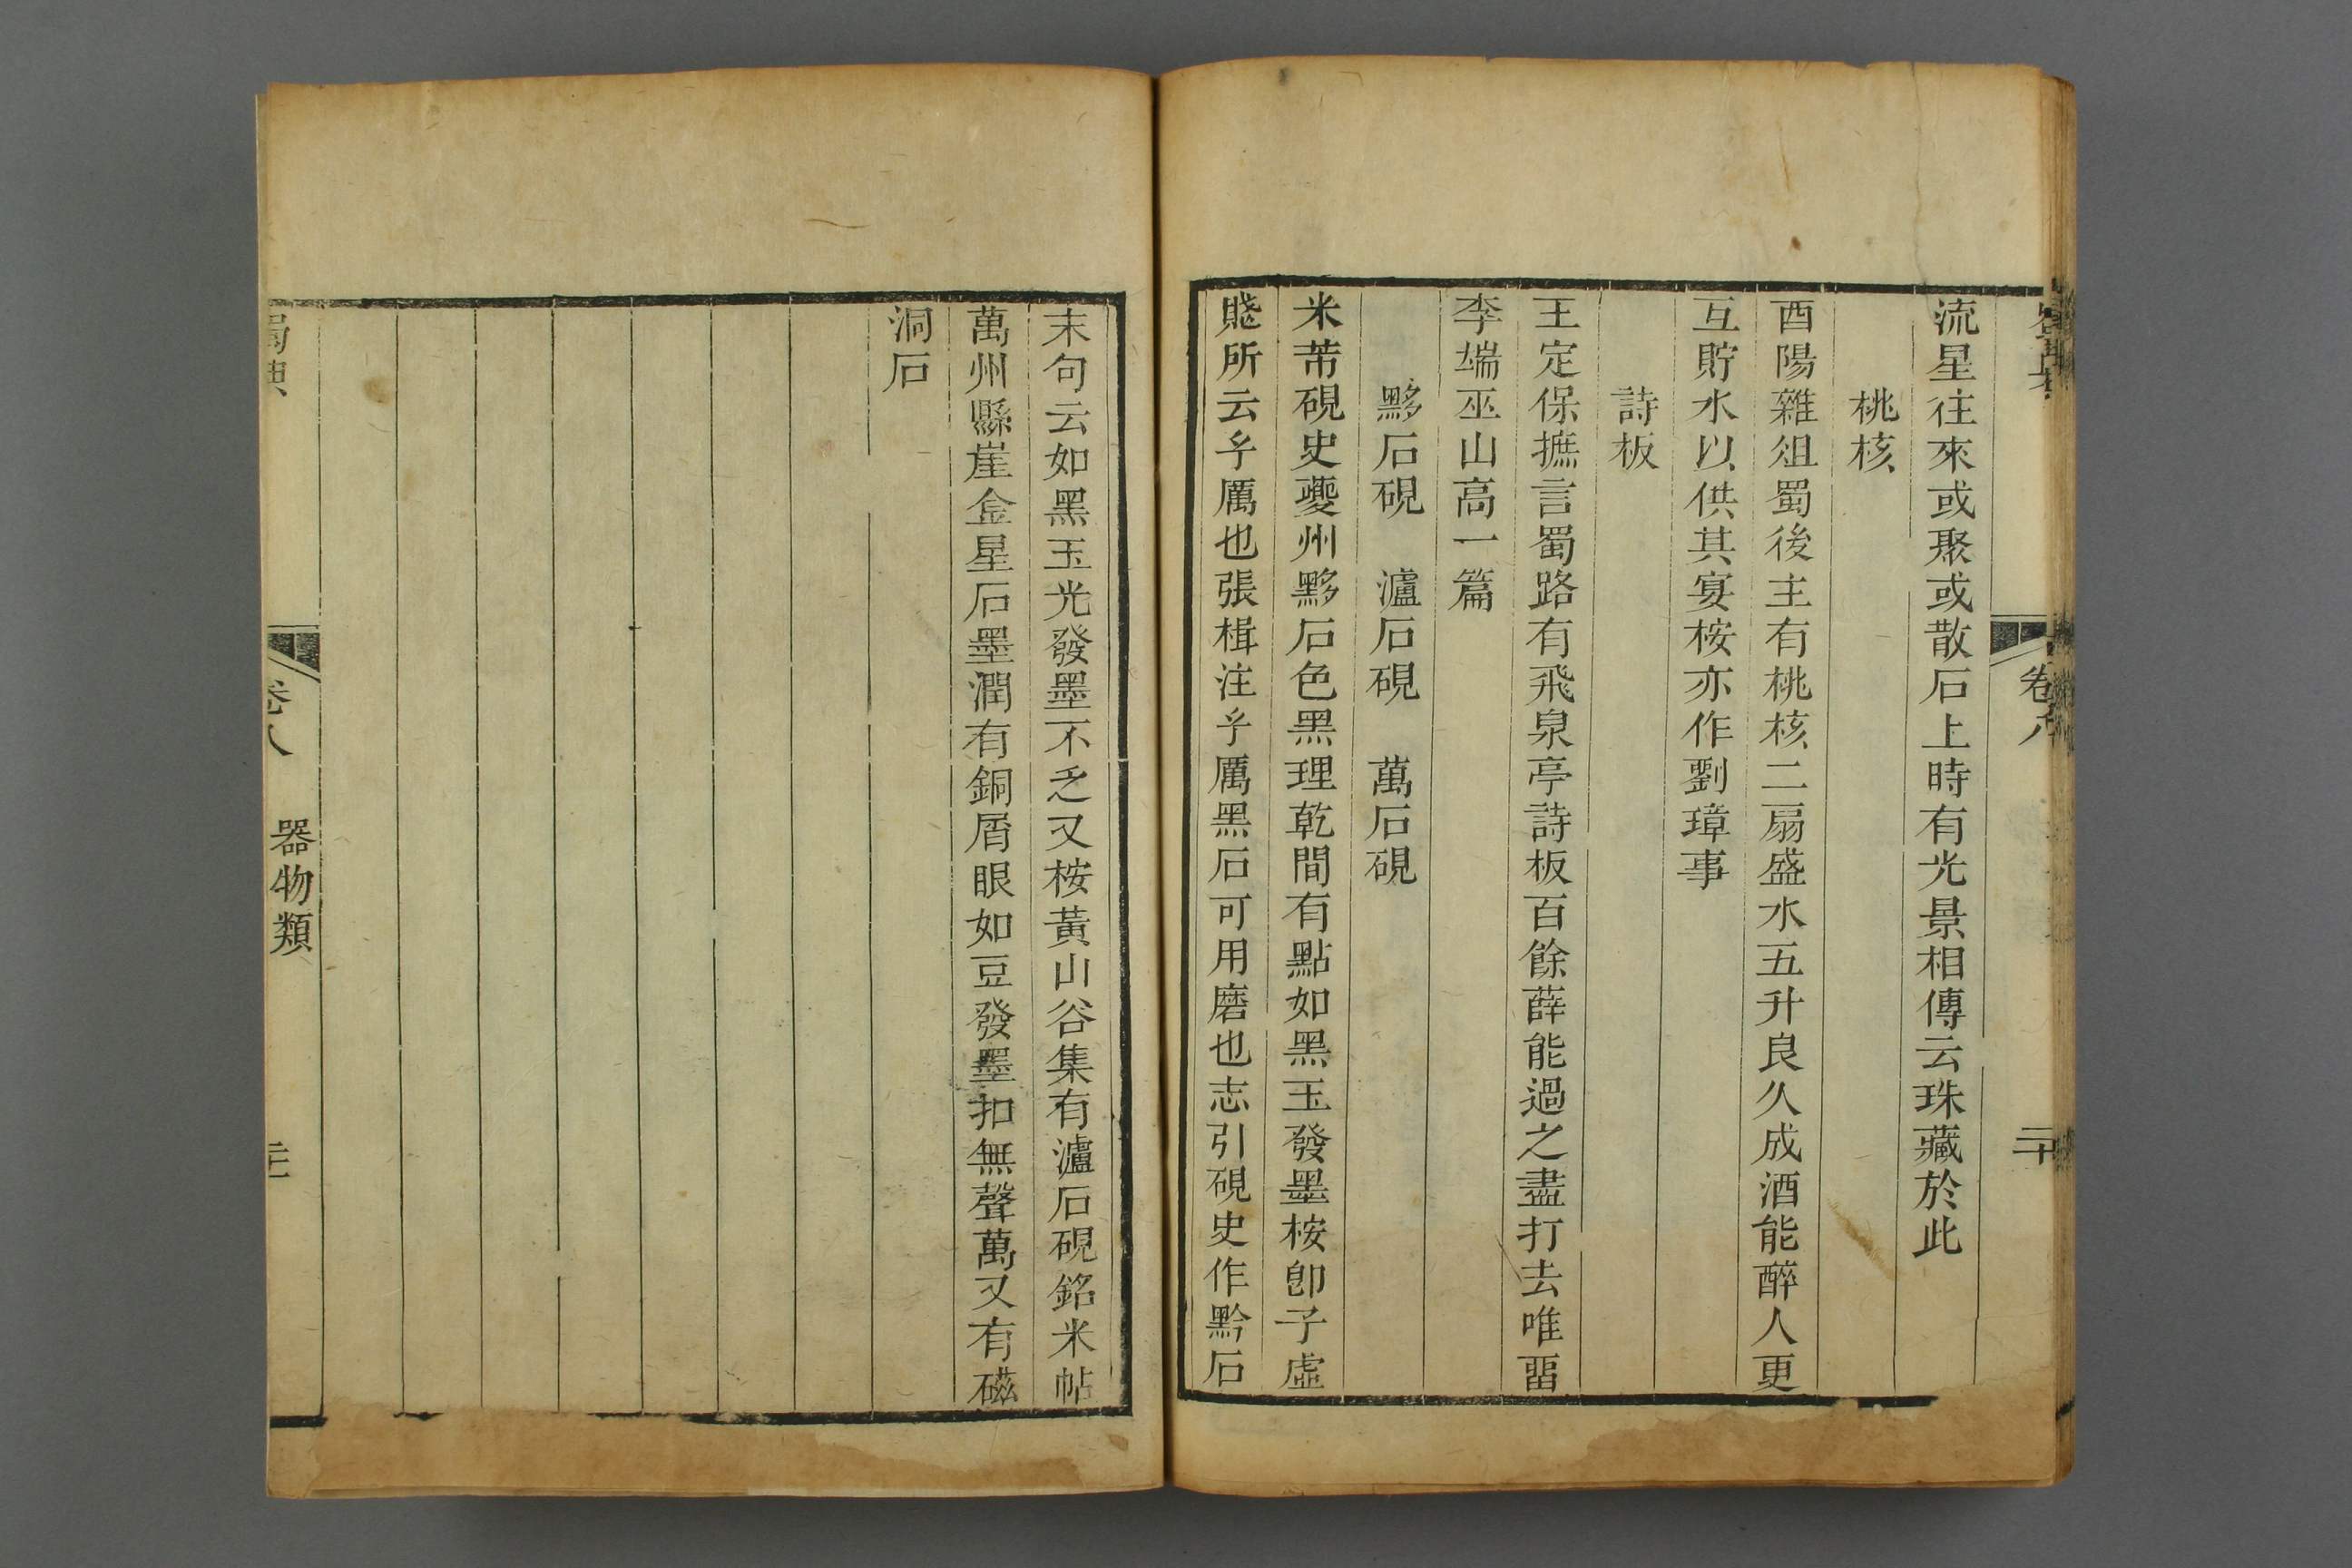 卷八
二十
流星往來或聚或散石上時有光景相傳云珠藏於此
桃核
酉陽雜俎蜀後主有桃核二扇盛水五升良久成酒能醉人更
互貯水以供其宴桉亦作劉璋事
詩板
王定保摭言蜀路有飛泉亭詩板百餘薛能過之盡打去唯畱
李端巫山高一篇
黟石硯 瀘石硯 萬石硯
米芾硯史夔州黟石色黑理乾間有點如黑玉發墨桉卽子虛
賤所云㺨厲也張楫注㺨厲黑石可用磨也志引硯史作黔石
末句云如黑玉光發墨不乏又桉黃山谷集有瀘石硯銘米帖
萬州縣崖金星石墨潤有銅屑眼如豆發墨扣無聲萬又有磁
洞石
蜀典
卷八
器物類